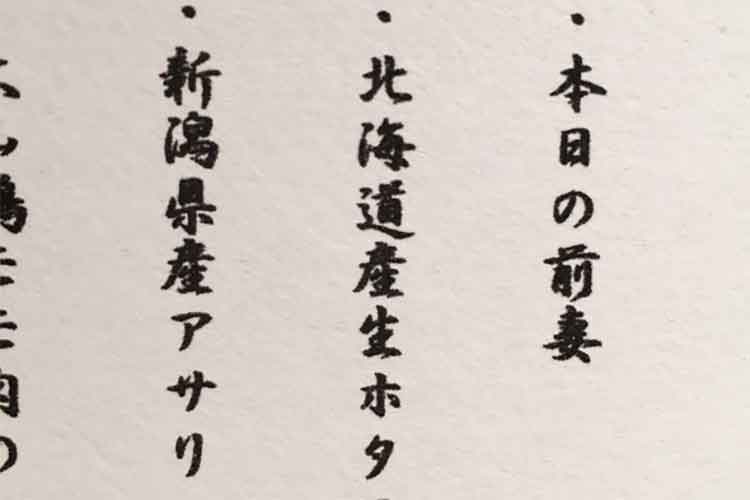 ・本日の前妻
・北海道産生ホタ
・新潟県産アサリ
モモ肉の